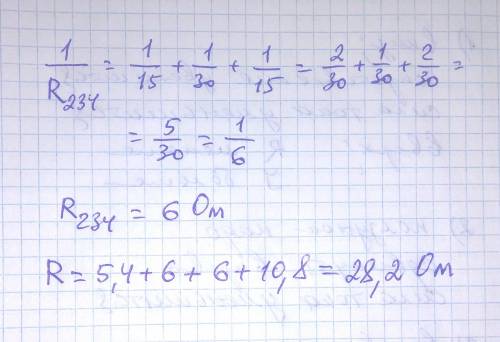 1/R₂₃₄ = 1/15 + 1/30 + 1/15 = 2/30 + 1/30 + 2/30 =
= 5/30 = 1/6
R₂₃₄ = 6 Ом
R = 5,4 + 6 + 6 + 10,8 = 28,2 Ом